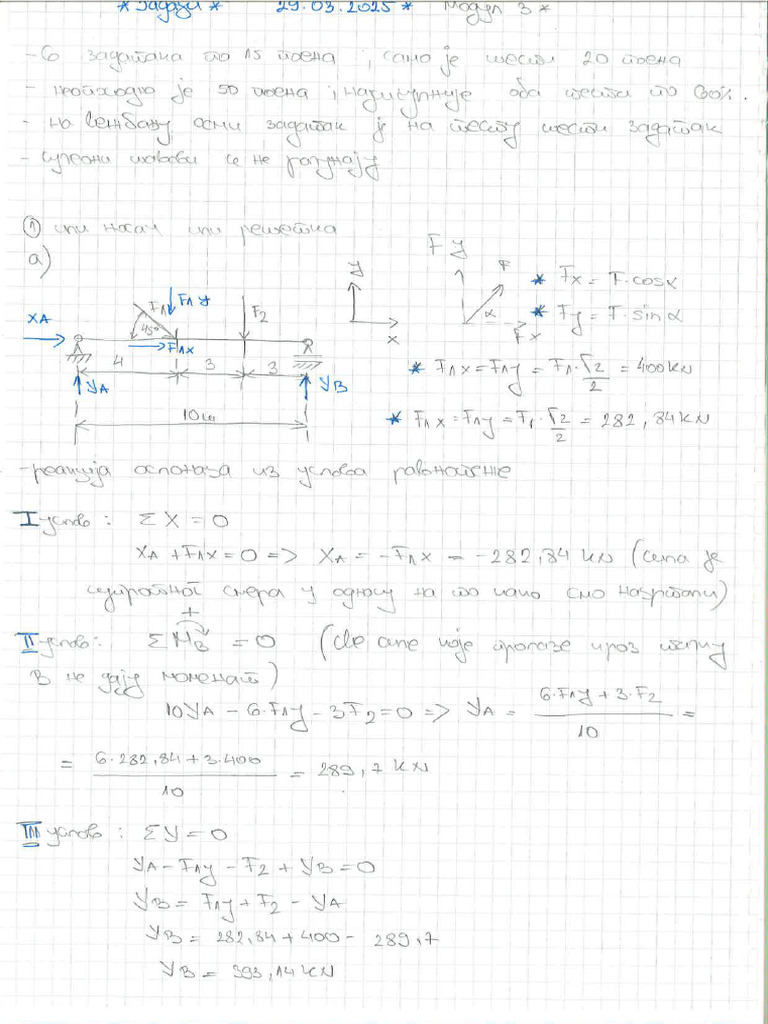 * Задаци * 29.03.2025 * Модул 3 *
- 6 задатака по 15 поена ; само је шести 20 поена
- неопходно је 50 поена ; најмање оба теста по 30%.
- на вежбању осми задатак је на тесту шести задатак
- се не рачунају
① или носач или решетка
а)
Fy
y
F
* Fx = F·cosα
F1
F1y
F2
* Fy = F·sinα
XA
45°
α
Fx
x
F1x
* F1x = F1y = F1·√2/2 = 400kN
4
3
3
YA
YB
10m
* F1x = F1y = F1·√2/2 = 282,84kN
- реакција ослонаца из услова равнотеже
I услов: ΣX = 0
XA + F1x = 0 => XA = -F1x = -282,84 kN (сила је
супротног смера у односу на то како смо нацртали)
+
II услов: ΣMB = 0 (све силе које пролазе кроз тачку
B не дају моменат)
10YA - 6·F1y - 3F2 = 0 => YA = (6·F1y + 3·F2)/10 =
= (6·282,84 + 3·400)/10 = 289,7 kN
III услов: ΣY = 0
YA - F1y - F2 + YB = 0
YB = F1y + F2 - YA
YB = 282,84 + 400 - 289,7
YB = 393,14kN